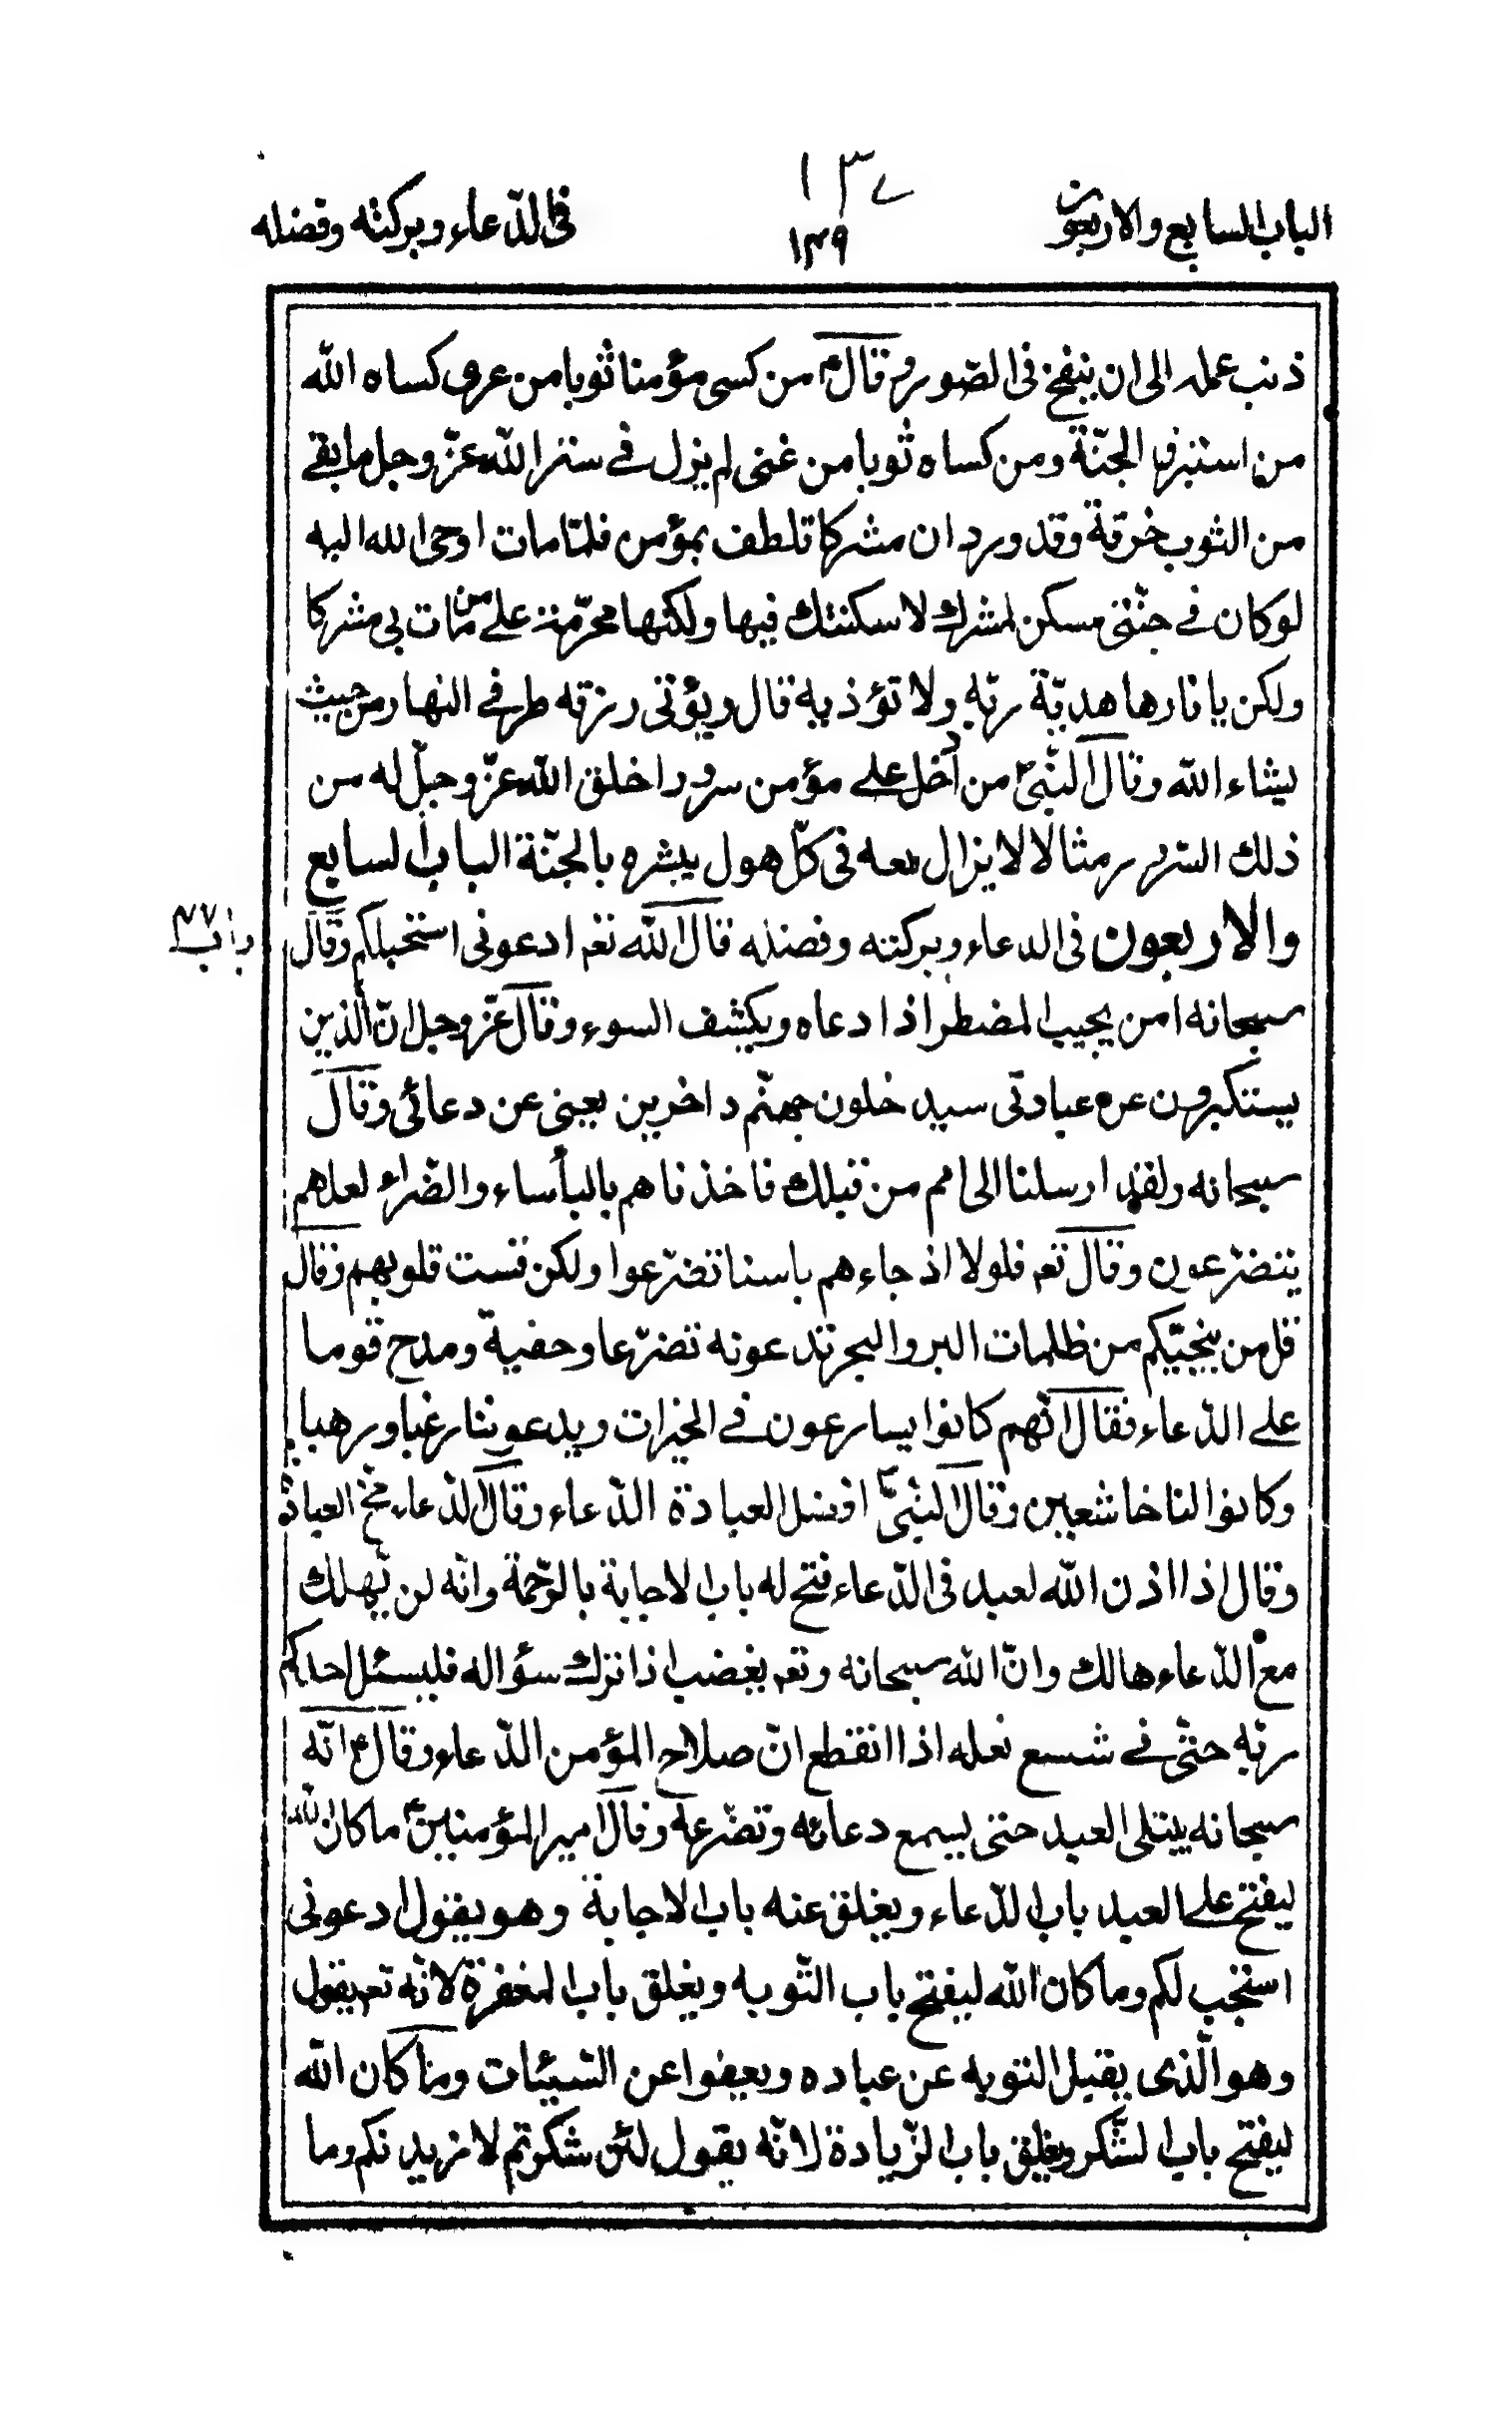 الباب السابع والاربعون
١٣٧
١٣٩
فى الدّعاء وبركته وفضله
ذنب عمله الى ان ينفخ فى الصّور وقال ع من كسى مؤمنا ثوبا من عرى كساه الله
من استبرق الجنّة ومن كساه ثوبا من غنى لم يزل فے ستر الله عزّ وجل ما بقے
من الثوب خرقة وقد ورد ان مشركا تلطف بمؤمن فلمّا مات اوحى الله اليه
لو كان فے جنّتى مسكن لمشرك لاسكنتك فيها ولكنها محرّمة علے من مات بى مشركا
ولكن يا نار هاهديّة ربّه ولا تؤذيه قال ويؤتى رزقه طرفے النهار من حيث
يشاء الله وقال النّبىّ ص من أدخل علے مؤمن سرورا خلق الله عزّ وجلّ له من
ذلك السّرور مثالا لا يزال معه فى كلّ هول يبشره بالجنّة الباب السابع
باب ٤٧
والاربعون فى الدعاء وبركته وفضله قال الله تعم ادعونى استجبلكم وقال
سبحانه امن يجيب المضطر اذا دعاه ويكشف السوء وقال عزّ وجل انّ الّذين
يستكبرون عن عبادتى سيدخلون جهنّم داخرين يعنى عن دعائى وقال
سبحانه ولقد ارسلنا الى امم من قبلك فاخذناهم بالبأساء والضّراء لعلهم
يتضرّعون وقال تعم فلولا اذ جاءهم باسنا تضرّعوا ولكن قست قلوبهم وقال
قل من ينجيّكم من ظلمات البر والبحر تدعونه تضرّعا وخفية ومدح قوما
علے الدّعاء فقال انّهم كانوا يسارعون فے الخيرات ويدعوننا رغبا ورهبا
وكانوا لنا خاشعين وقال النّبىّ ص افضل العبادة الدّعاء وقال الدّعاء مخّ العبادة
وقال اذا اذن الله لعبد فى الدّعاء فتح له باب الاجابة بالرّحمة وانّه لن يّهلك
مع الدّعاء هالك وانّ الله سبحانه وتعم يغضب اذا ترك سؤاله فليسئل احدكم
ربّه حتّى فے شسع نعله اذا انقطع انّ صلاح المؤمن الدّعاء وقال ع انّه
سبحانه يبتلى العبد حتى يسمع دعائه وتضرّعه وقال امير المؤمنين ع ما كان الله
ليفتح علے العبد باب الدّعاء ويغلق عنه باب الاجابة وهو يقول ادعونى
استجب لكم وما كان الله ليفتح باب التّوبه ويغلق باب المغفرة لانّه تعم يقول
وهو الّذى يقبل التوبه عن عباده ويعفوا عن السّيئات وما كان الله
ليفتح باب الشّكر ويغلق باب الزّيادة لانّه يقول لئن شكرتم لازيدنكم وما